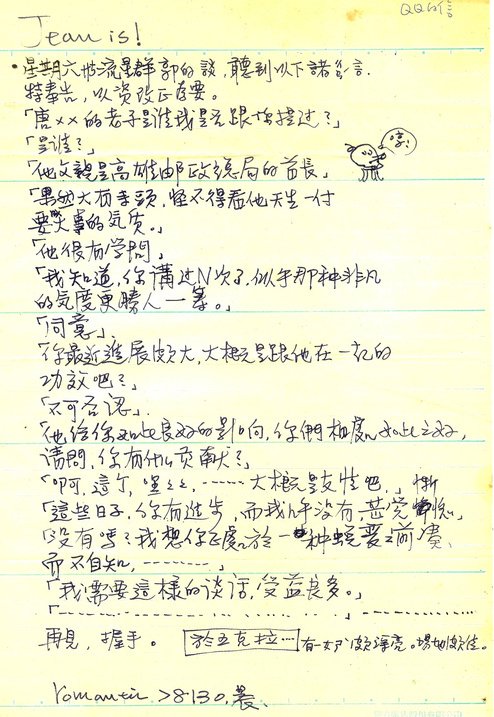 QQ的信
Jean is!
•星期六 流星群 郭的談，聽到以下諸多言．
特奉告，以資改正存要。
「唐××的老子是誰我是否跟你提過？」
「是誰？」
「他父親是高雄郵政總局的首長」
哼！
「果然大有來頭，怪不得看他天生一付
要幹大事的気质。」
「他很有学問」
「我知道，你講过N次了．似乎那种非凡
的気度更勝人一筹。」
「同意」．
「你最近進展頗大，大概是跟他在一起的
功效吧？」
「不可否認」．
「他給你如此良好的影响，你們相處如此之好，
請問，你有什么贡献？」
「啊，這个，嘿… ……大概是友情吧．」
「這些日子，你有進步，而我几乎没有，甚觉慚愧」
「没有嗎？我想你正處於一种蛻变之前奏，
而不自知，………」
「我需要這樣的谈话，受益良多。」
「…………………」…………
再見，握手。 於五克拉… 有一女 頗漂亮。場地頗佳。
Romantic > 8130，晨．